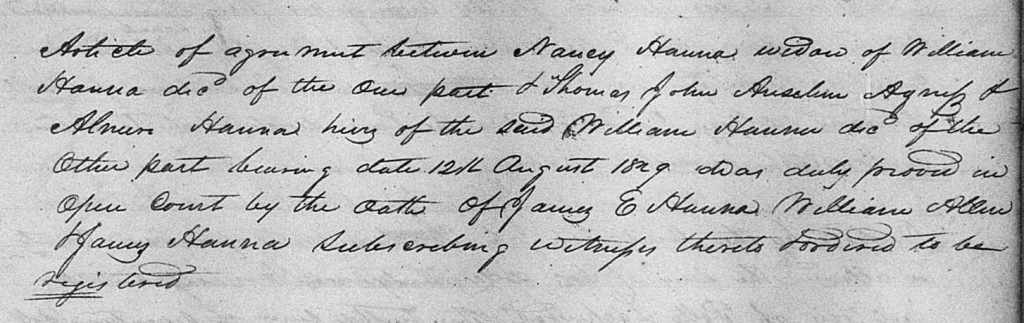 Article of agreement between Nancy Hanna widow of William
Hanna decd of the One part & Thomas John Anselm Agness &
Hanna heirs of the said William Hanna decd of the
Other part bearing date 12th August 1829 was duly proved in
Open Court by the Oath Of James E Hanna William Allen
& James Hanna Subscribing witness thereto & ordered to be
registered